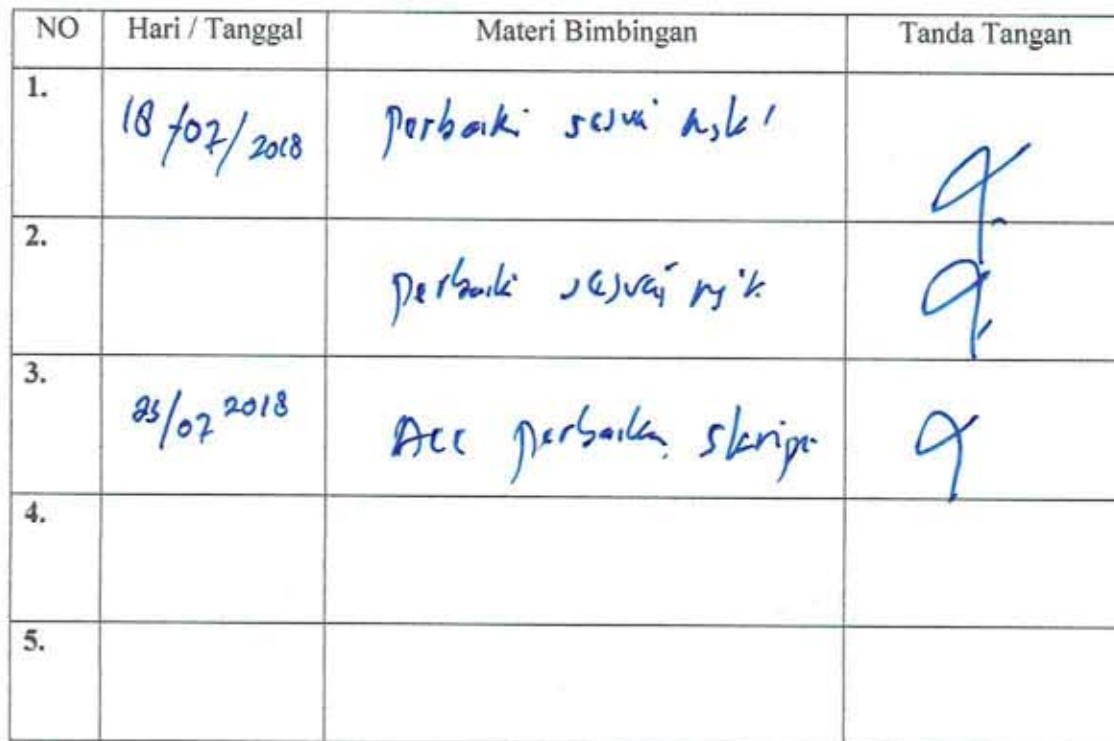 NO Hari / Tanggal Materi Bimbingan Tanda Tangan
1.
18/07/2018 Perbaiki sesuai
2.
Perbaiki sesuai
3.
25/07 2018 Acc perbaikan skripsi
4.
5.